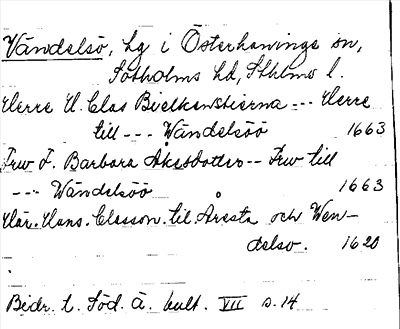 Vändelsö, Lg i Österhanings sn,
Sotholms hd, Sthlms l.
Herre H. Clas Bielkenstierna --- Herre
till --- Wändelsöö 1663
Frw F. Barbara Åkesdotter -- Frw till
--- Wändelsöö 1663
Här. Hans. Classon. til. Åresta och Wen-
delso. 1620
Bidr. t. Söd. ä. kult. VII s. 14